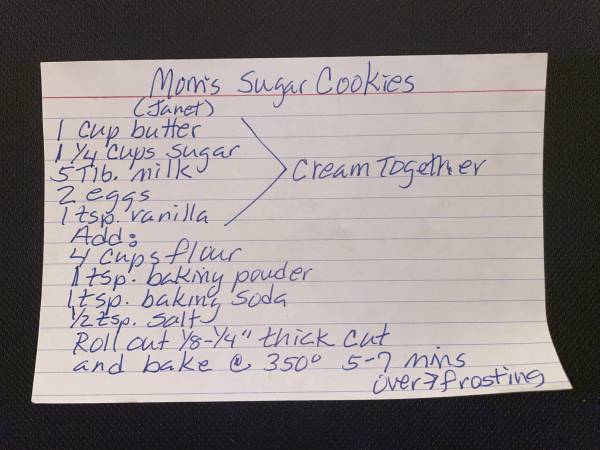 Mom's Sugar Cookies
(Janet)
1 cup butter
1 1/4 cups sugar
5 Tlb. milk
2 eggs
1 tsp. vanilla
Cream Together
Add:
4 cups flour
1 tsp. baking powder
1 tsp. baking soda
1/2 tsp. salt
Roll out 1/8-1/4" thick cut
and bake @ 350° 5-7 mins
over→frosting